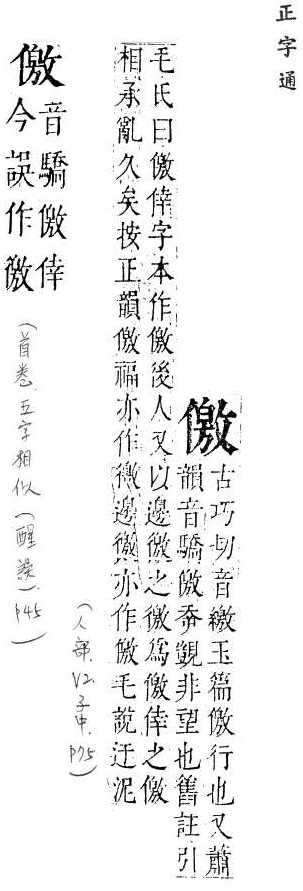 正字通
儌 古巧切音繳玉篇儌行也又蕭
韻音驕儌夲覬非望也舊註引
毛氏曰儌倖字本作儌後人又以邊徼之徼為儌倖之儌
相承亂久矣按正韻儌福亦作徼邊徼亦作儌毛說迂泥
(人部.子中.P75)
儌 音驕儌倖
今誤作徼
(首卷.五字相似(醒誤).P45)